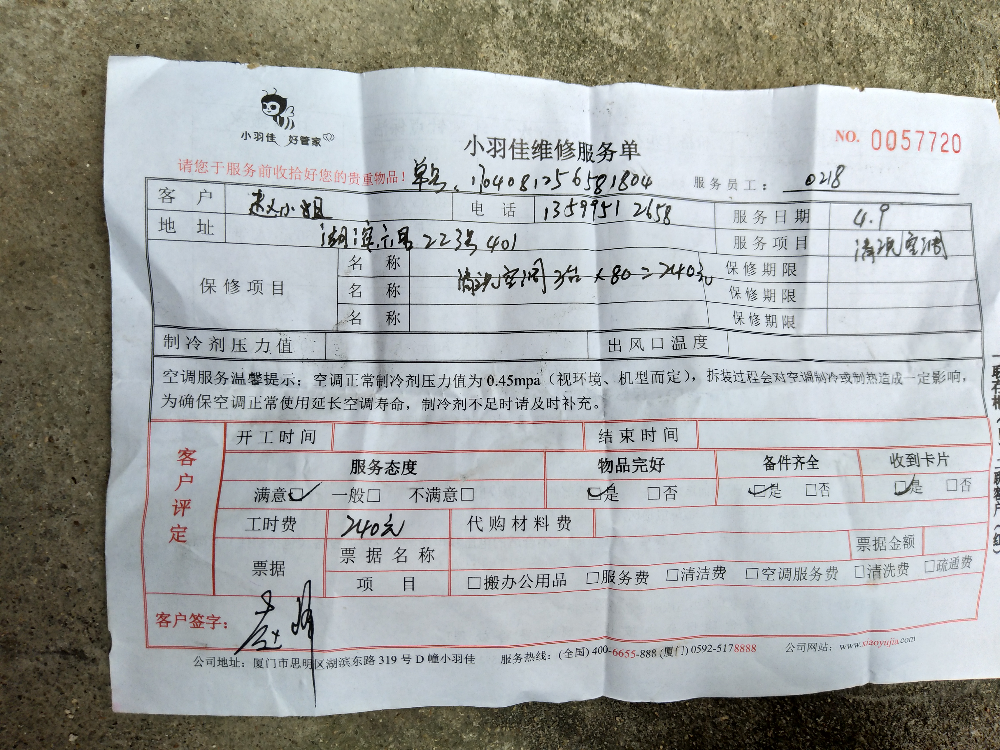 小羽佳 好管家
小羽佳维修服务单
NO. 0057720
请您于服务前收拾好您的贵重物品!
单号: 1704081256581804 服务员工: 0218
客户 赵小姐 电话 13599512658 服务日期 4.9
地址 湖滨六里223号401 服务项目 清洗空调
保修项目 名称 清洗空调3台×80=240元 保修期限
名称 保修期限
名称 保修期限
制冷剂压力值 出风口温度
空调服务温馨提示:空调正常制冷剂压力值为0.45mpa(视环境、机型而定),拆装过程会对空调制冷或制热造成一定影响,
为确保空调正常使用延长空调寿命,制冷剂不足时请及时补充。
客户评定
开工时间 结束时间
服务态度 物品完好 备件齐全 收到卡片
满意☑ 一般□ 不满意□ ☑是 □否 ☑是 □否 ☑是 □否
工时费 240元 代购材料费
票据 票据名称 票据金额
项目 □搬办公用品 □服务费 □清洁费 □空调服务费 □清洗费 □疏通费
客户签字:
公司地址:厦门市思明区湖滨东路319号D幢小羽佳 服务热线:(全国)400-6655-888(厦门)0592-5178888 公司网站:www.xiaoyujia.com